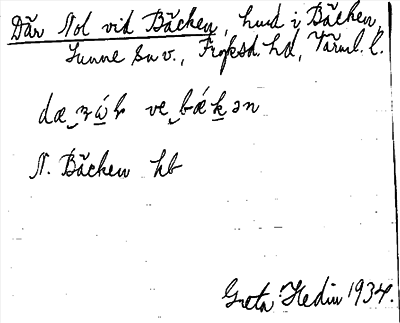 Där Nol vid Bäcken, hmd i Bäcken,
Sunne sn v., Fryksd. hd, Värml. l.
ve bǽkən
N. Bäcken hb
Greta Hedin 1934.